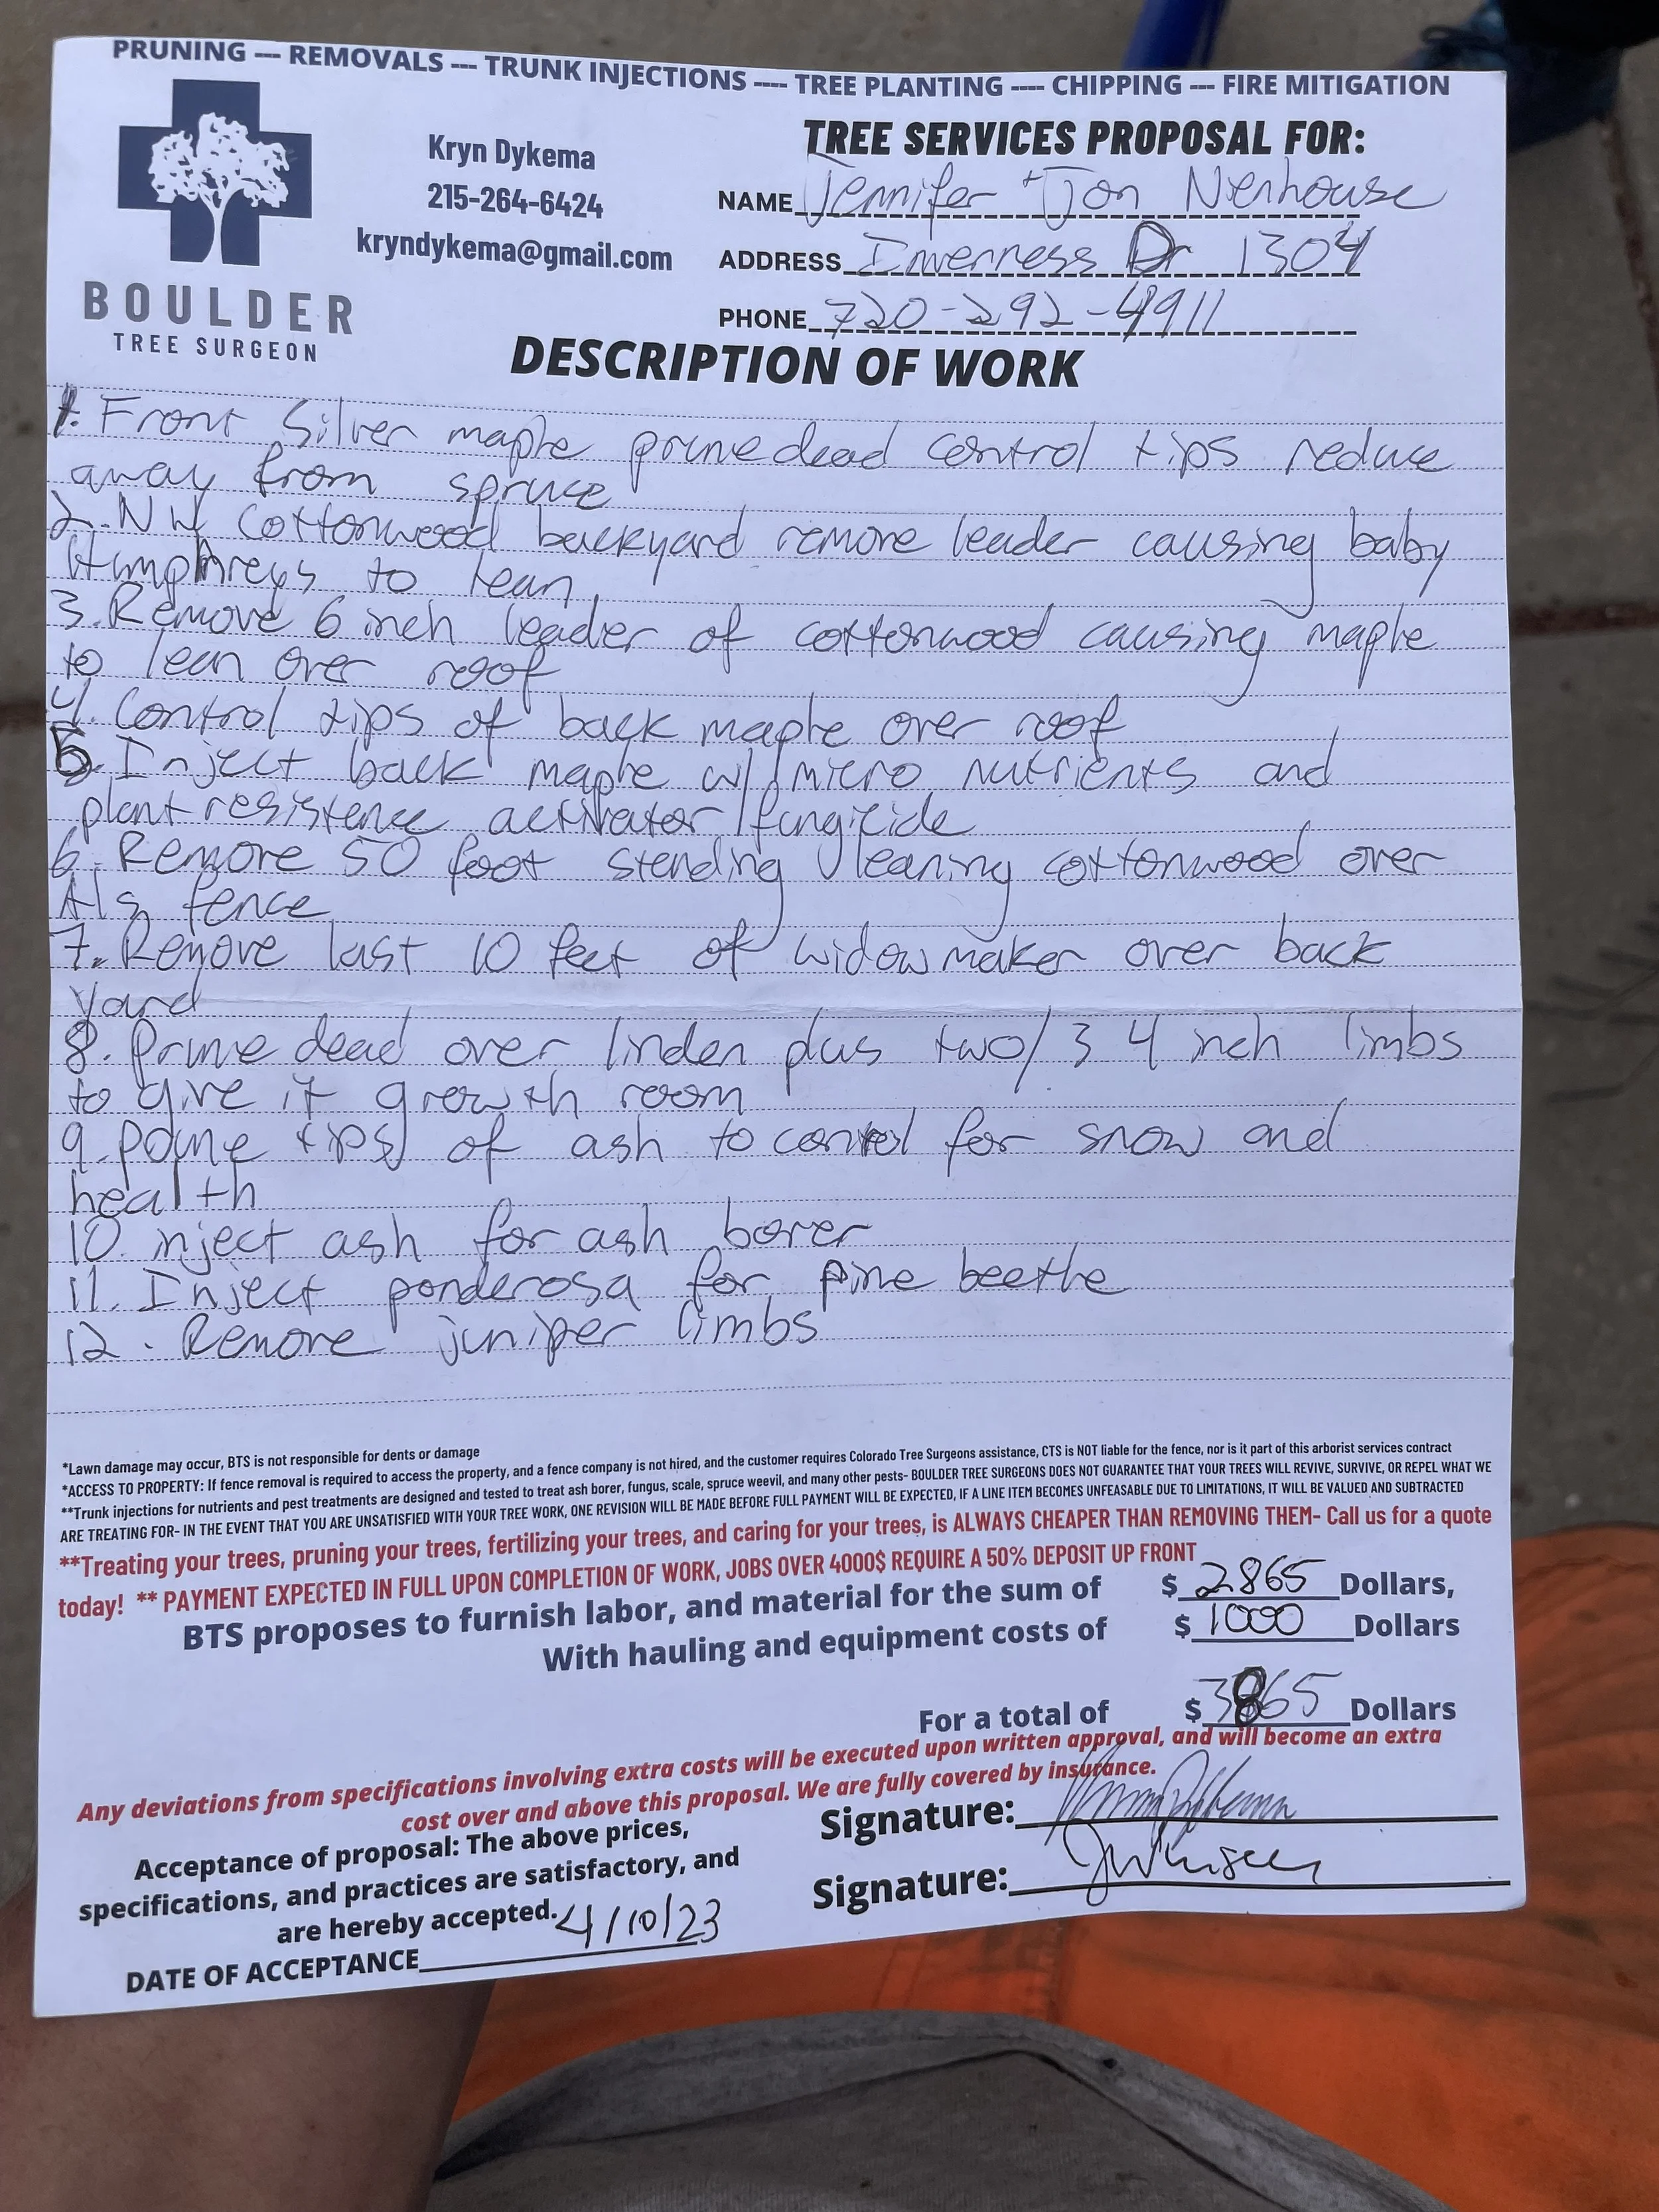 PRUNING --- REMOVALS --- TRUNK INJECTIONS ---- TREE PLANTING ---- CHIPPING --- FIRE MITIGATION
BOULDER
TREE SURGEON
Kryn Dykema
215-264-6424
kryndykema@gmail.com
TREE SERVICES PROPOSAL FOR:
NAME Jennifer + Jon Nienhouse
ADDRESS Inverness Dr 1304
PHONE 720-292-4911
DESCRIPTION OF WORK
1. Front Silver maple prune dead control tips reduce
away from spruce
2. NW Cottonwood backyard remove leader causing baby
Humphreys to lean
3. Remove 6 inch leader of cottonwood causing maple
to lean over roof
4. Control tips of back maple over roof
5. Inject back maple w/ micro nutrients and
plant resistence activator/fungicide
6. Remove 50 foot stending leaning cottonwood over
Als fence
7. Remove last 10 feet of widowmaker over back
yard
8. Prune dead over linden plus two/3 4 inch limbs
to give it growth room
9. Prune tips of ash to control for snow and
health
10. inject ash for ash borer
11. Inject ponderosa for pine beetle
12. Remove juniper limbs
*Lawn damage may occur, BTS is not responsible for dents or damage
*ACCESS TO PROPERTY: If fence removal is required to access the property, and a fence company is not hired, and the customer requires Colorado Tree Surgeons assistance, CTS is NOT liable for the fence, nor is it part of this arborist services contract
**Trunk injections for nutrients and pest treatments are designed and tested to treat ash borer, fungus, scale, spruce weevil, and many other pests- BOULDER TREE SURGEONS DOES NOT GUARANTEE THAT YOUR TREES WILL REVIVE, SURVIVE, OR REPEL WHAT WE
ARE TREATING FOR- IN THE EVENT THAT YOU ARE UNSATISFIED WITH YOUR TREE WORK, ONE REVISION WILL BE MADE BEFORE FULL PAYMENT WILL BE EXPECTED, IF A LINE ITEM BECOMES UNFEASABLE DUE TO LIMITATIONS, IT WILL BE VALUED AND SUBTRACTED
**Treating your trees, pruning your trees, fertilizing your trees, and caring for your trees, is ALWAYS CHEAPER THAN REMOVING THEM- Call us for a quote
today! ** PAYMENT EXPECTED IN FULL UPON COMPLETION OF WORK, JOBS OVER 4000$ REQUIRE A 50% DEPOSIT UP FRONT
BTS proposes to furnish labor, and material for the sum of $ 2865 Dollars,
With hauling and equipment costs of $ 1000 Dollars
For a total of $ 3865 Dollars
Any deviations from specifications involving extra costs will be executed upon written approval, and will become an extra
cost over and above this proposal. We are fully covered by insurance.
Acceptance of proposal: The above prices,
specifications, and practices are satisfactory, and
are hereby accepted.
DATE OF ACCEPTANCE 4/10/23
Signature:
Signature: